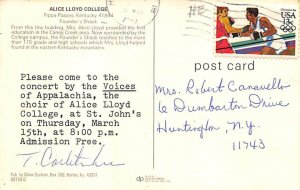 ALICE LLOYD COLLEGE
Pippa Passes, Kentucky 41844
Founder's Shack
From this tiny building, Mrs. Alice Lloyd provided the first
education in the Caney Creek Area. Now surrounded by the
College campus, the Founder's Shack testifies to the more
than 115 grade and high schools which Mrs. Lloyd helped
found in the eastern Kentucky mountains.
USA
post card
Please come to the
concert by the Voices
of Appalachia, the
choir of Alice Lloyd
College, at St. John's
on Thursday, March
15th, at 8:00 p.m.
Admission Free.
Mrs. Robert Canavello
6 Dumbarton Drive
Huntington, N.Y.
11743